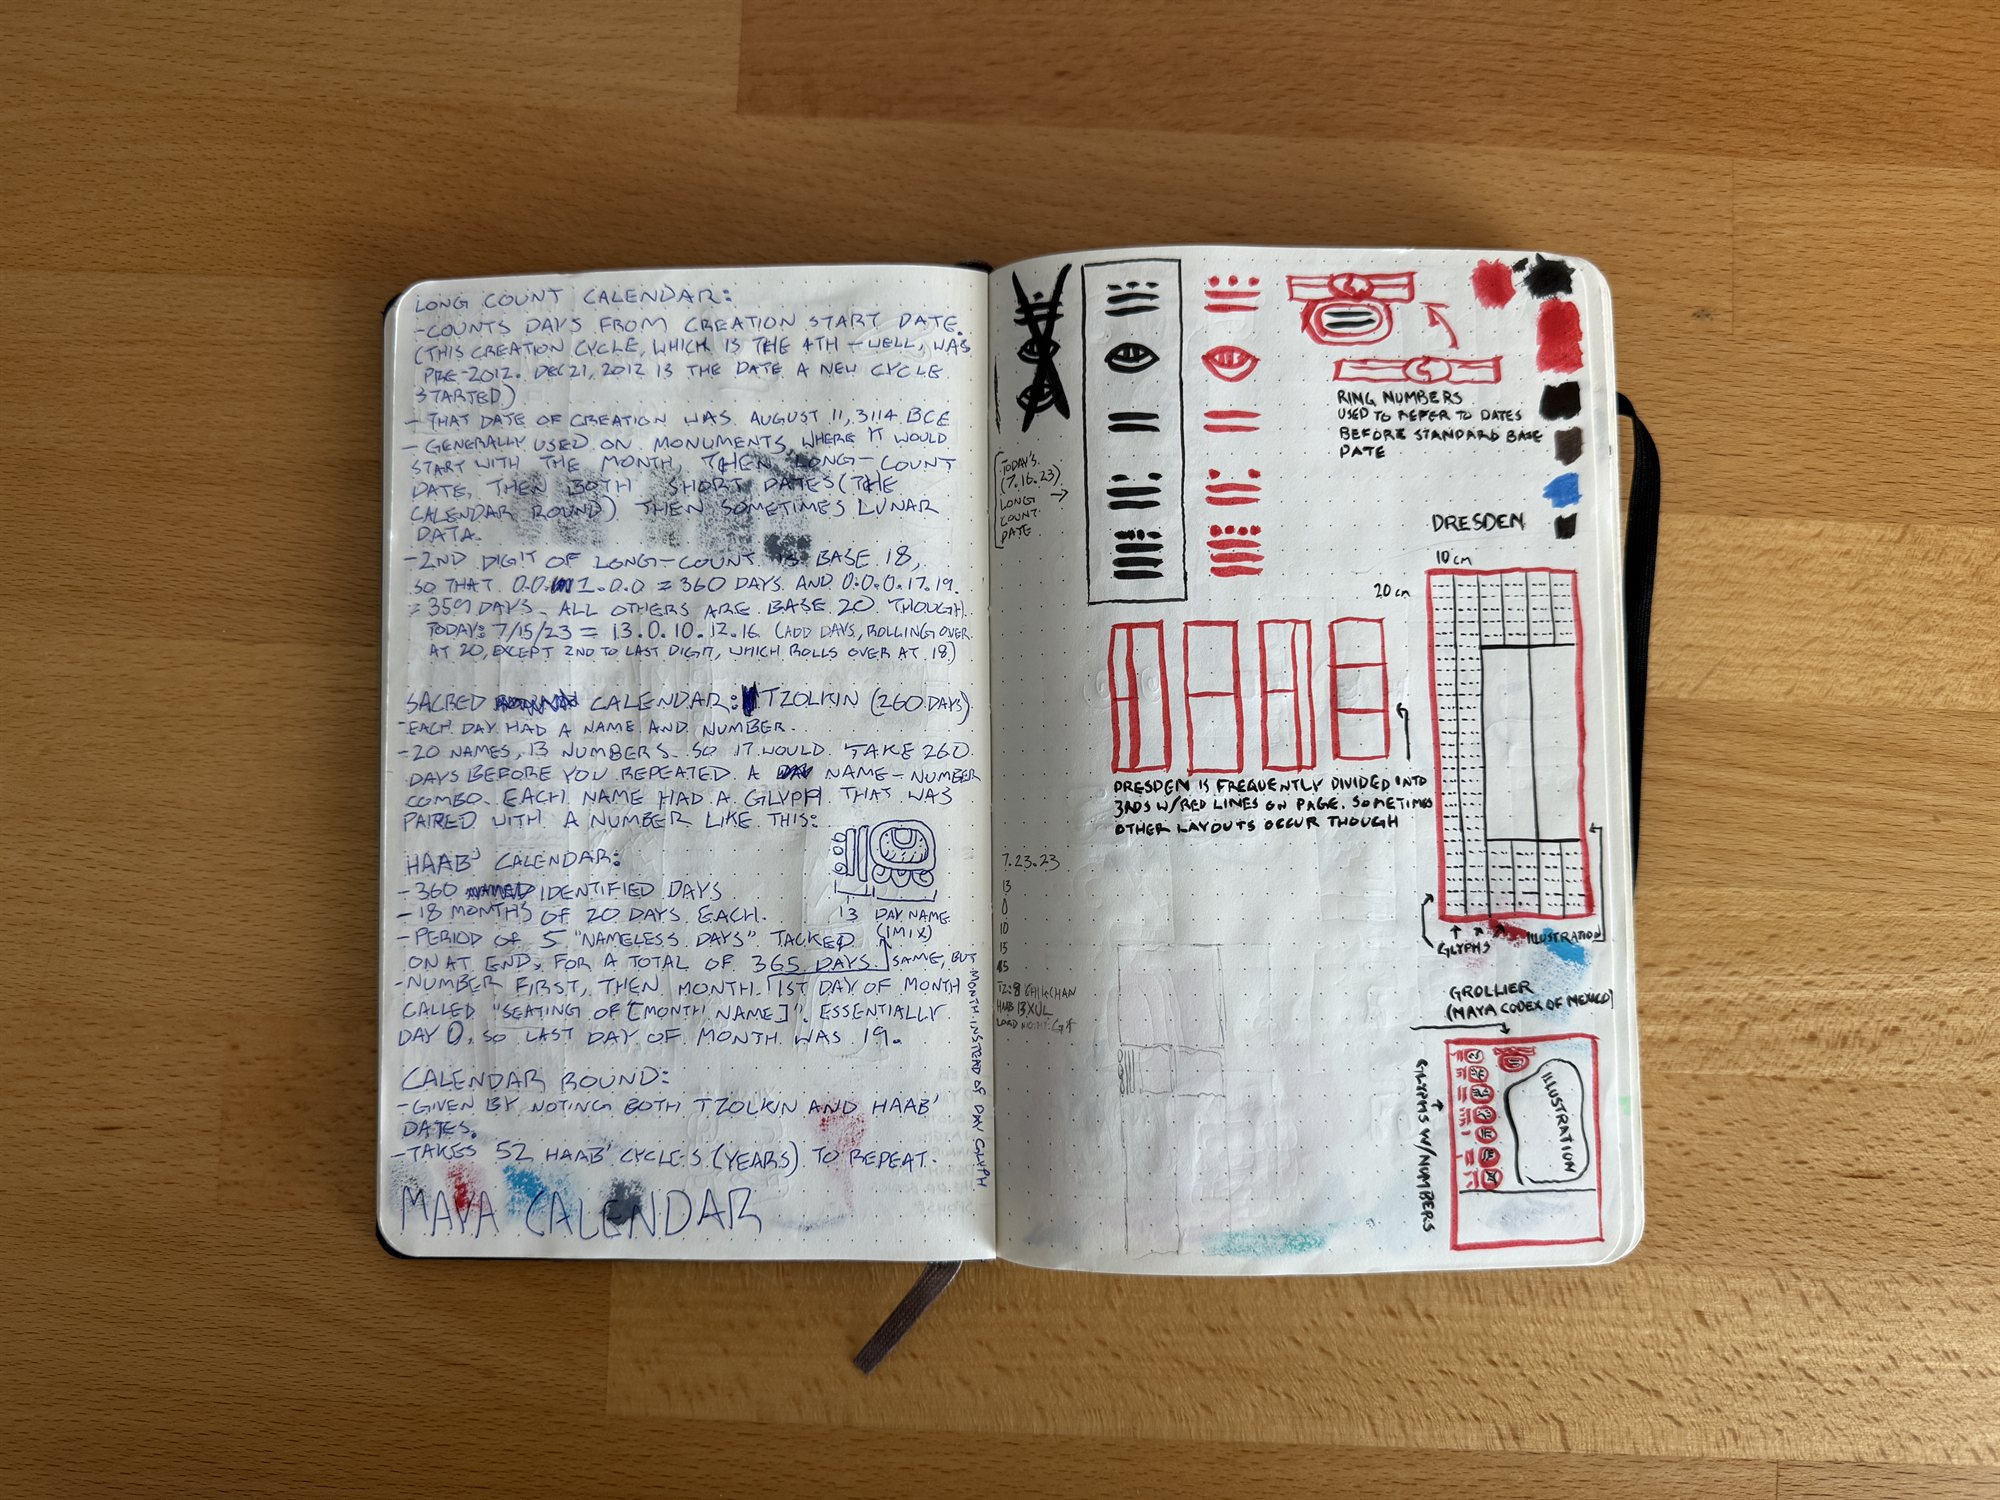 LONG COUNT CALENDAR:
-COUNTS DAYS FROM CREATION START DATE.
(THIS CREATION CYCLE, WHICH IS THE 4TH - WELL, WAS
PRE-2012. DEC 21, 2012 IS THE DATE A NEW CYCLE
STARTED)
- THAT DATE OF CREATION WAS AUGUST 11, 3114 BCE
- GENERALLY USED ON MONUMENTS, WHERE IT WOULD
START WITH THE MONTH, THEN LONG-COUNT
DATE, THEN BOTH SHORT DATES (THE
CALENDAR ROUND) THEN SOMETIMES LUNAR
DATA.
-2ND DIGIT OF LONG-COUNT IS BASE 18,
SO THAT 0.0.1.0.0 = 360 DAYS AND 0.0.0.17.19.
= 359 DAYS. ALL OTHERS ARE BASE 20 THOUGH.
TODAY: 7/15/23 = 13.0.10.12.16 (ADD DAYS, ROLLING OVER
AT 20, EXCEPT 2ND TO LAST DIGIT, WHICH ROLLS OVER AT 18)
SACRED CALENDAR: TZOLKIN (260 DAYS)
-EACH DAY HAD A NAME AND NUMBER.
-20 NAMES, 13 NUMBERS. SO IT WOULD TAKE 260
DAYS BEFORE YOU REPEATED A NAME-NUMBER
COMBO. EACH NAME HAD A GLYPH THAT WAS
PAIRED WITH A NUMBER LIKE THIS:
13 DAY NAME
(IMIX)
HAAB' CALENDAR:
- 360 IDENTIFIED DAYS
- 18 MONTHS OF 20 DAYS EACH.
- PERIOD OF 5 "NAMELESS DAYS" TACKED
ON AT END, FOR A TOTAL OF 365 DAYS.
-NUMBER FIRST, THEN MONTH. 1ST DAY OF MONTH
CALLED "SEATING OF [MONTH NAME]". ESSENTIALLY
DAY 0, SO LAST DAY OF MONTH WAS 19.
SAME, BUT
MONTH INSTEAD OF DAY GLYPH
CALENDAR ROUND:
-GIVEN BY NOTING BOTH TZOLKIN AND HAAB'
DATES.
-TAKES 52 HAAB' CYCLES (YEARS) TO REPEAT.
MAYA CALENDAR
TODAY'S
(7.16.23)
LONG
COUNT
DATE
RING NUMBERS
USED TO REFER TO DATES
BEFORE STANDARD BASE
DATE
DRESDEN
10 cm
20 cm
DRESDEN IS FREQUENTLY DIVIDED INTO
3RDS W/RED LINES ON PAGE. SOMETIMES
OTHER LAYOUTS OCCUR THOUGH
GLYPHS
ILLUSTRATION
7.23.23
13
0
10
13
TZ: 8 CHICCHAN
HAAB 13 XUL
GROLLIER
(MAYA CODEX OF MEXICO)
GLYPHS W/NUMBERS
ILLUSTRATION